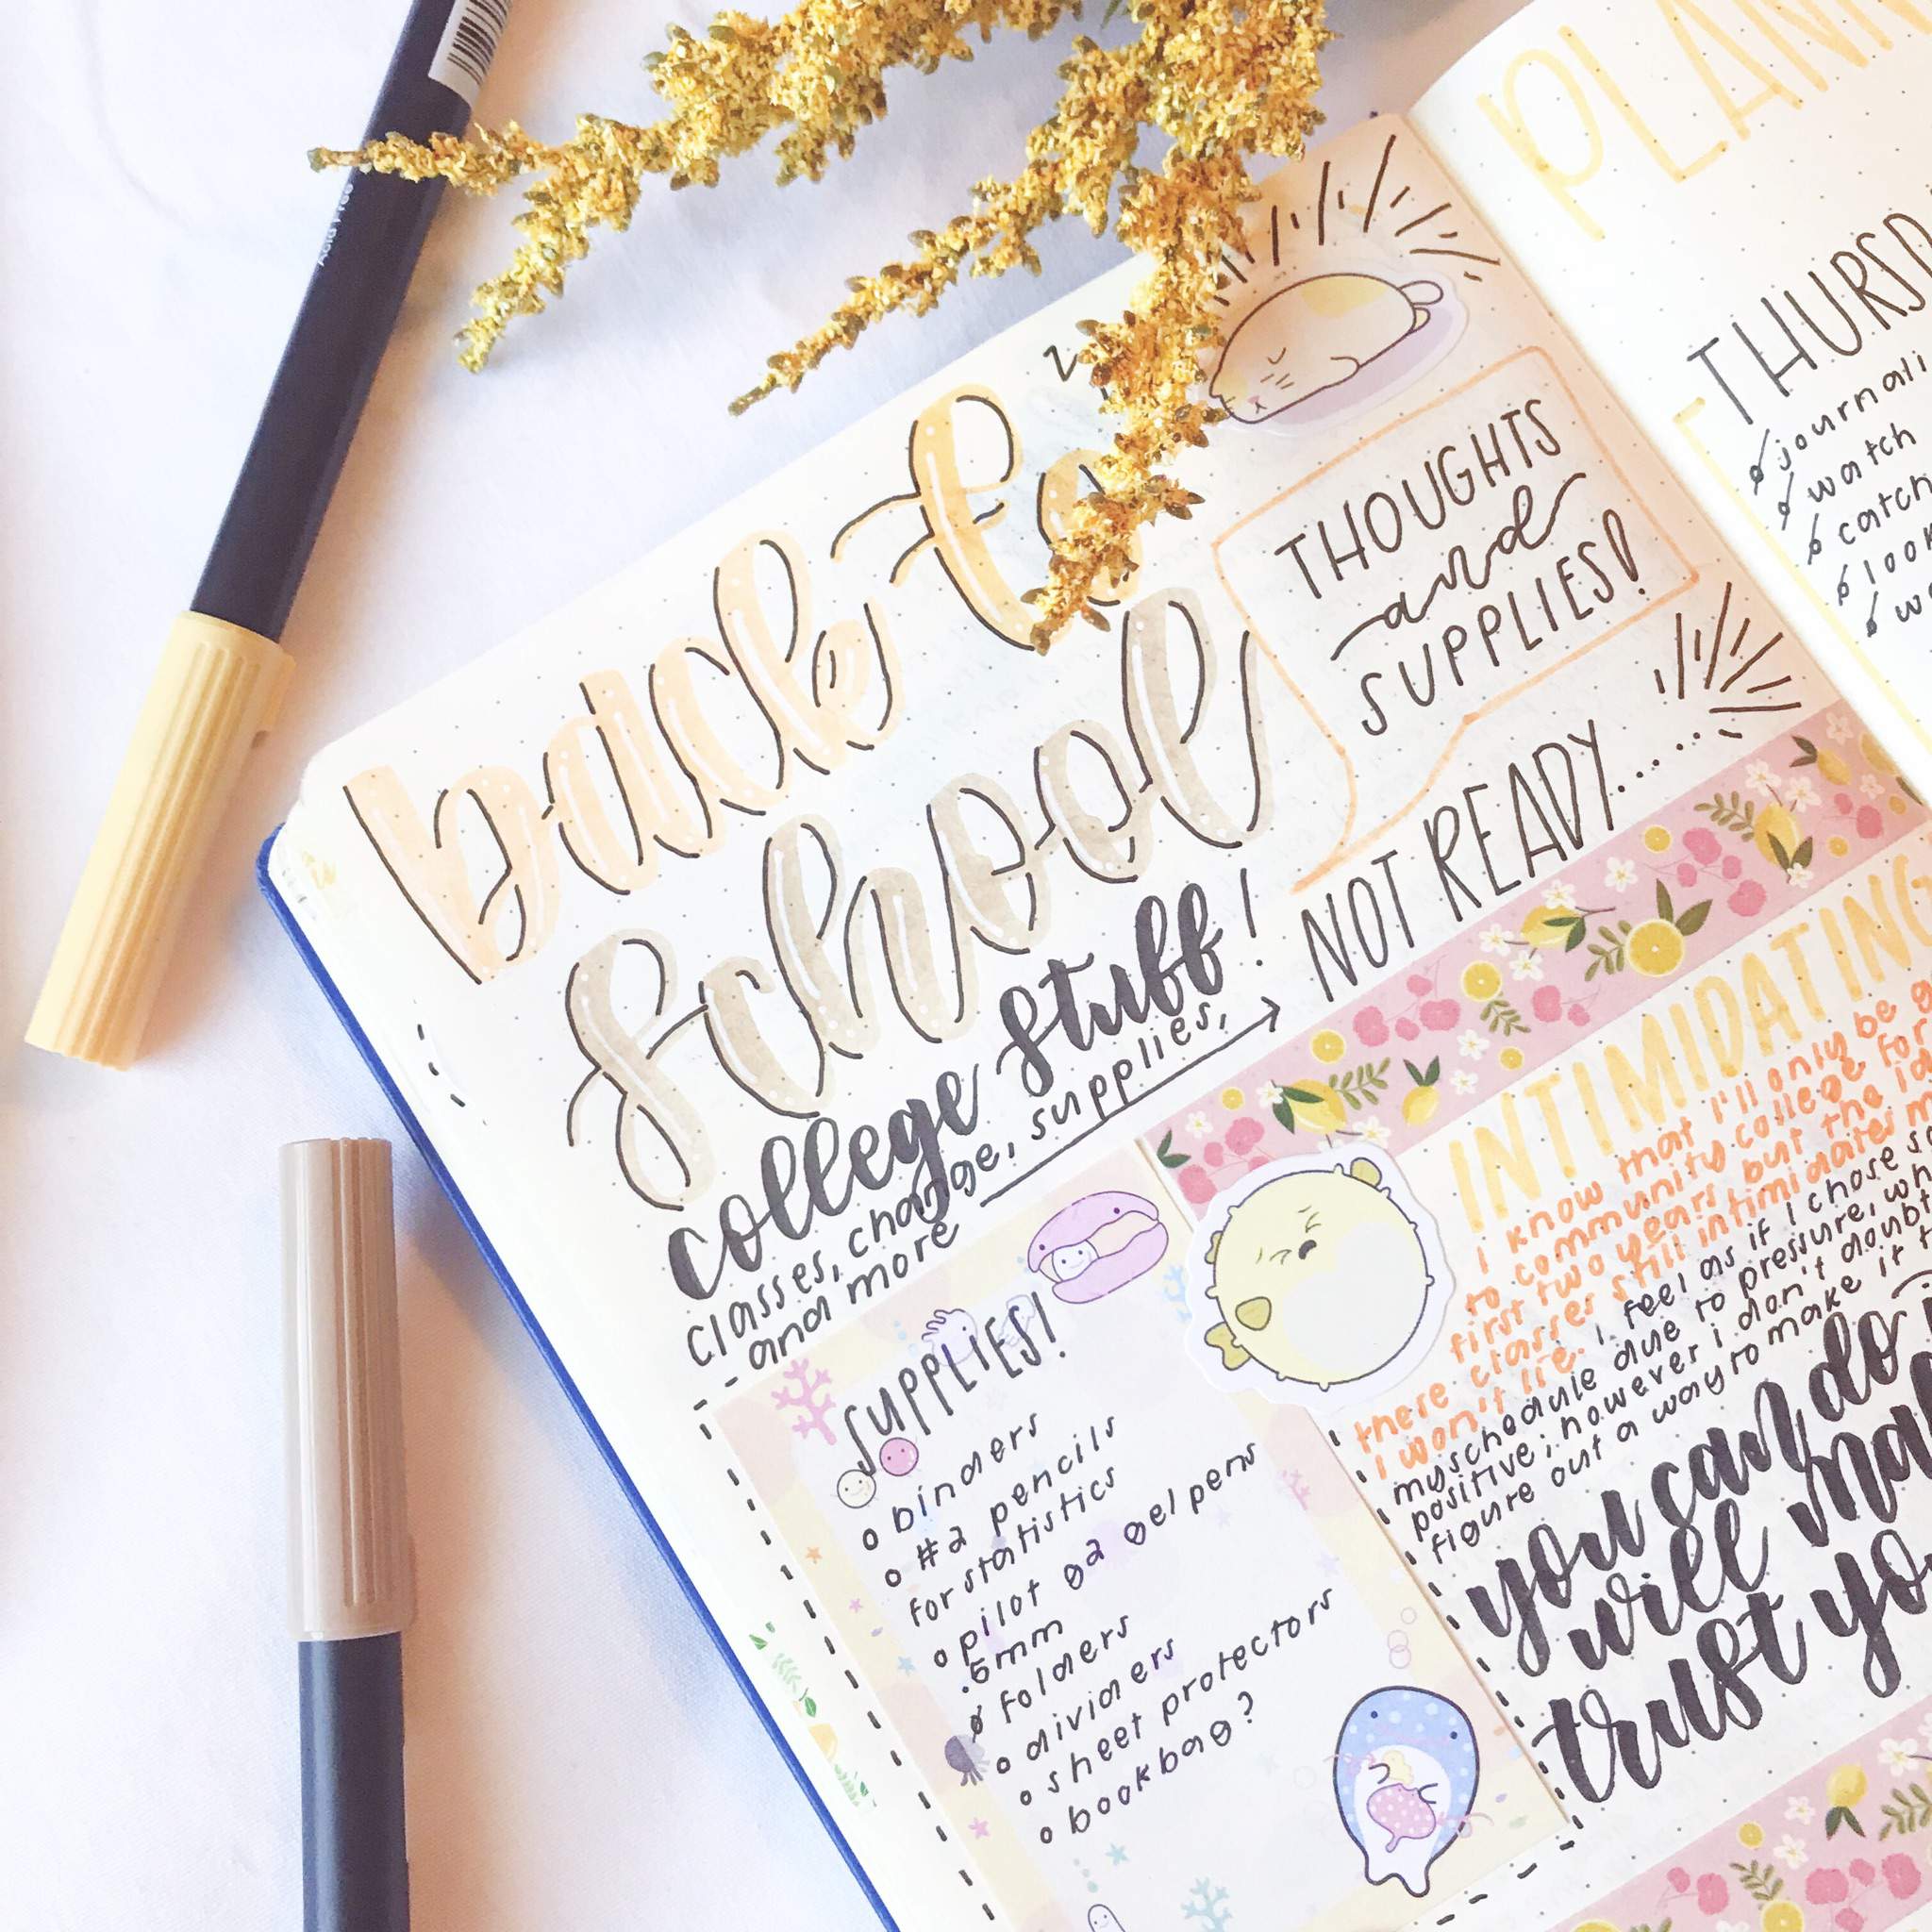 Acid Free
back-to
school
THOUGHTS
and
SUPPLIES!
college stuff!
classes, change, supplies,
and more
NOT READY......
SUPPLIES!
binders
#2 pencils
for statistics
pilot g2 gel pens
.5mm
folders
dividers
sheet protectors
bookbag?
INTIMIDATING
I know that I'll only be
to community college for
first two years, but the
these classes still intimidates
I won't lie. I feel as if I chose
my schedule due to pressure,
positive; however i don't doubt
figure out a way to make it
you can do
will
trust
THURSD
journali
watch
catch
look